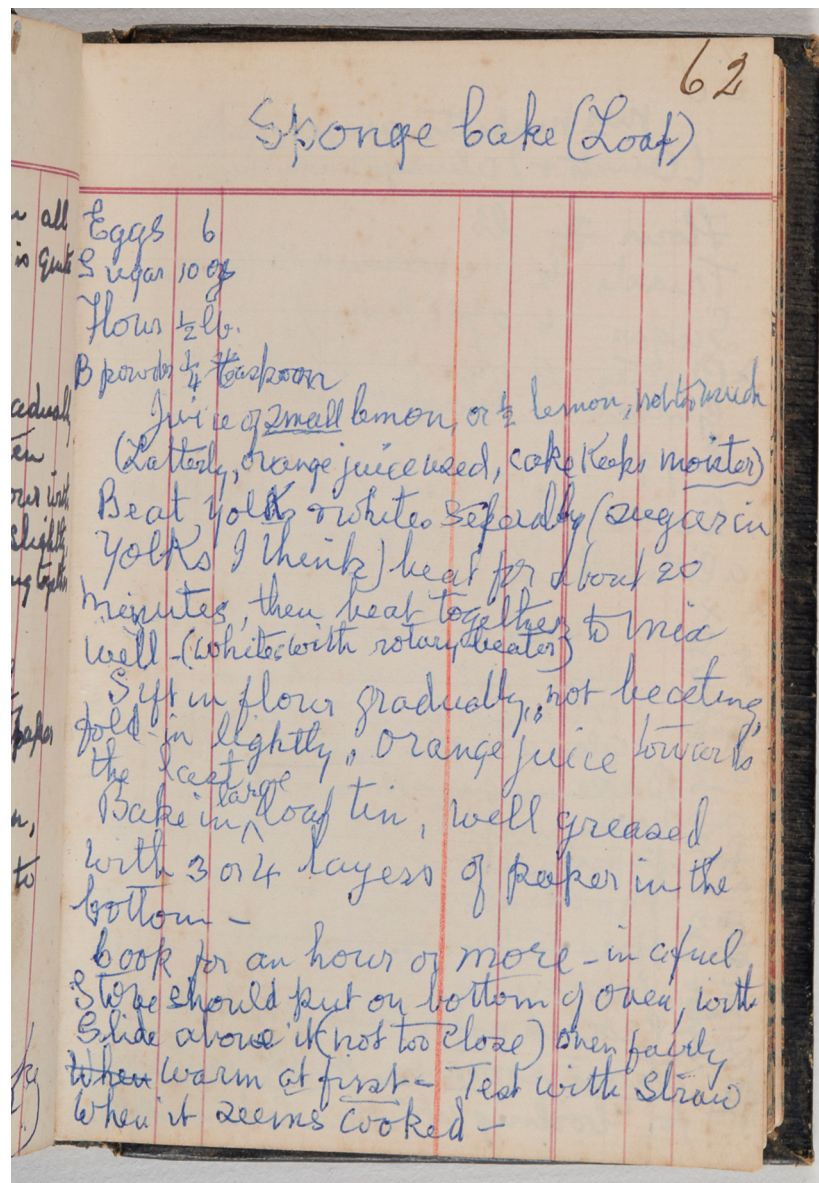 62
Sponge Cake (Loaf)
Eggs 6
Sugar 10 ozs
Flour ½ lb.
B powder ¼ teaspoon
Juice of small lemon, or ½ lemon, not too much
(Latterly, orange juice used, cake keeps moister)
Beat yolks & whites seperably (sugar in
yolks I think) beat for about 20
minutes, then beat together to mix
well - (whites with rotary beater)
Sift in flour gradually, not beating,
fold in lightly, orange juice towards
the last
Bake in large loaf tin, well greased
with 3 or 4 layers of paper in the
bottom -
Cook for an hour or more - in a fuel
Stove should put on bottom of oven, with
Slide above it (not too close) oven fairly
When warm at first - Test with straw
When it seems cooked -
all
is quite
adually
slightly
paper
to